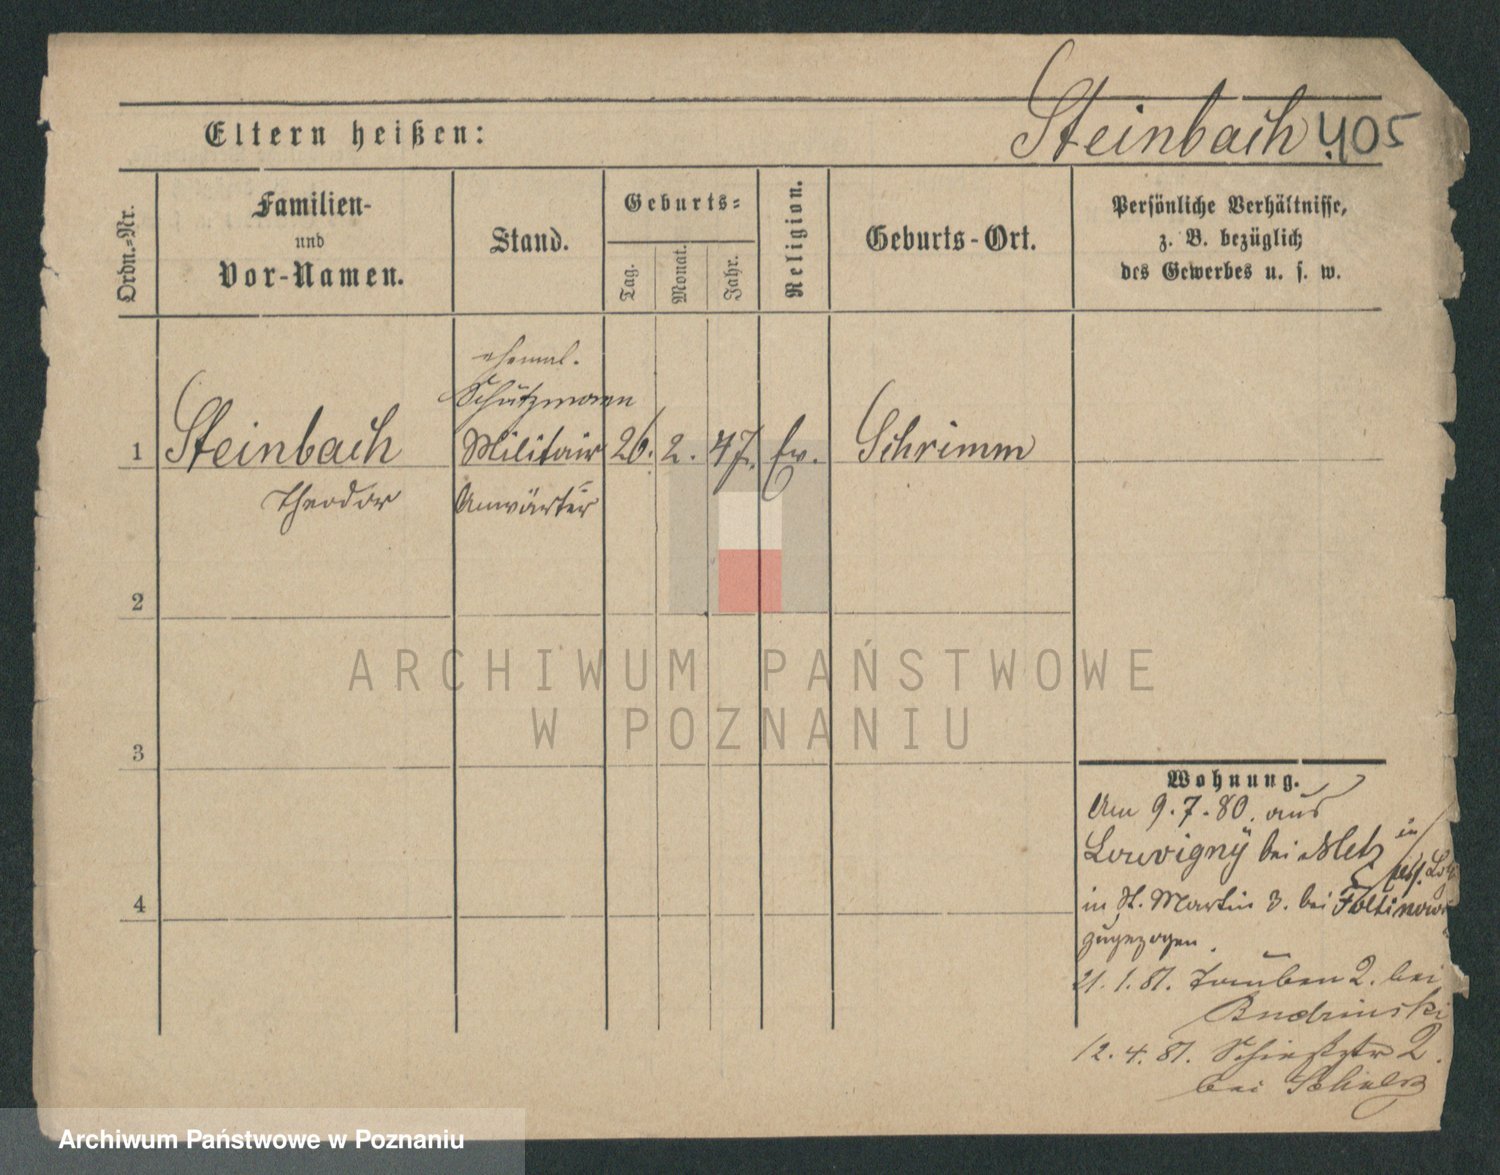 Steinbach 405
Eltern heißen:
Ordn.-Nr.
Familien-
und
Vor-Namen.
Stand.
Geburts-
Tag.
Monat.
Jahr.
Religion.
Geburts-Ort.
Persönliche Verhältnisse,
z. B. bezüglich
des Gewerbes u. s. w.
ehemal.
Schutzmann
1 Steinbach Militair 26. 2. 47. Ev. Schrimm
Theodor Anwärter
2
3
4
Wohnung.
Am 9.7.80. aus
Louvigny bei Metz in
in St. Martin 3. bei
zugezogen.
21.1.81. Tauben 2. bei
Budzinski
12.4.81. Schießstr 2.
bei
ARCHIWUM PAŃSTWOWE
W POZNANIU
Archiwum Państwowe w Poznaniu